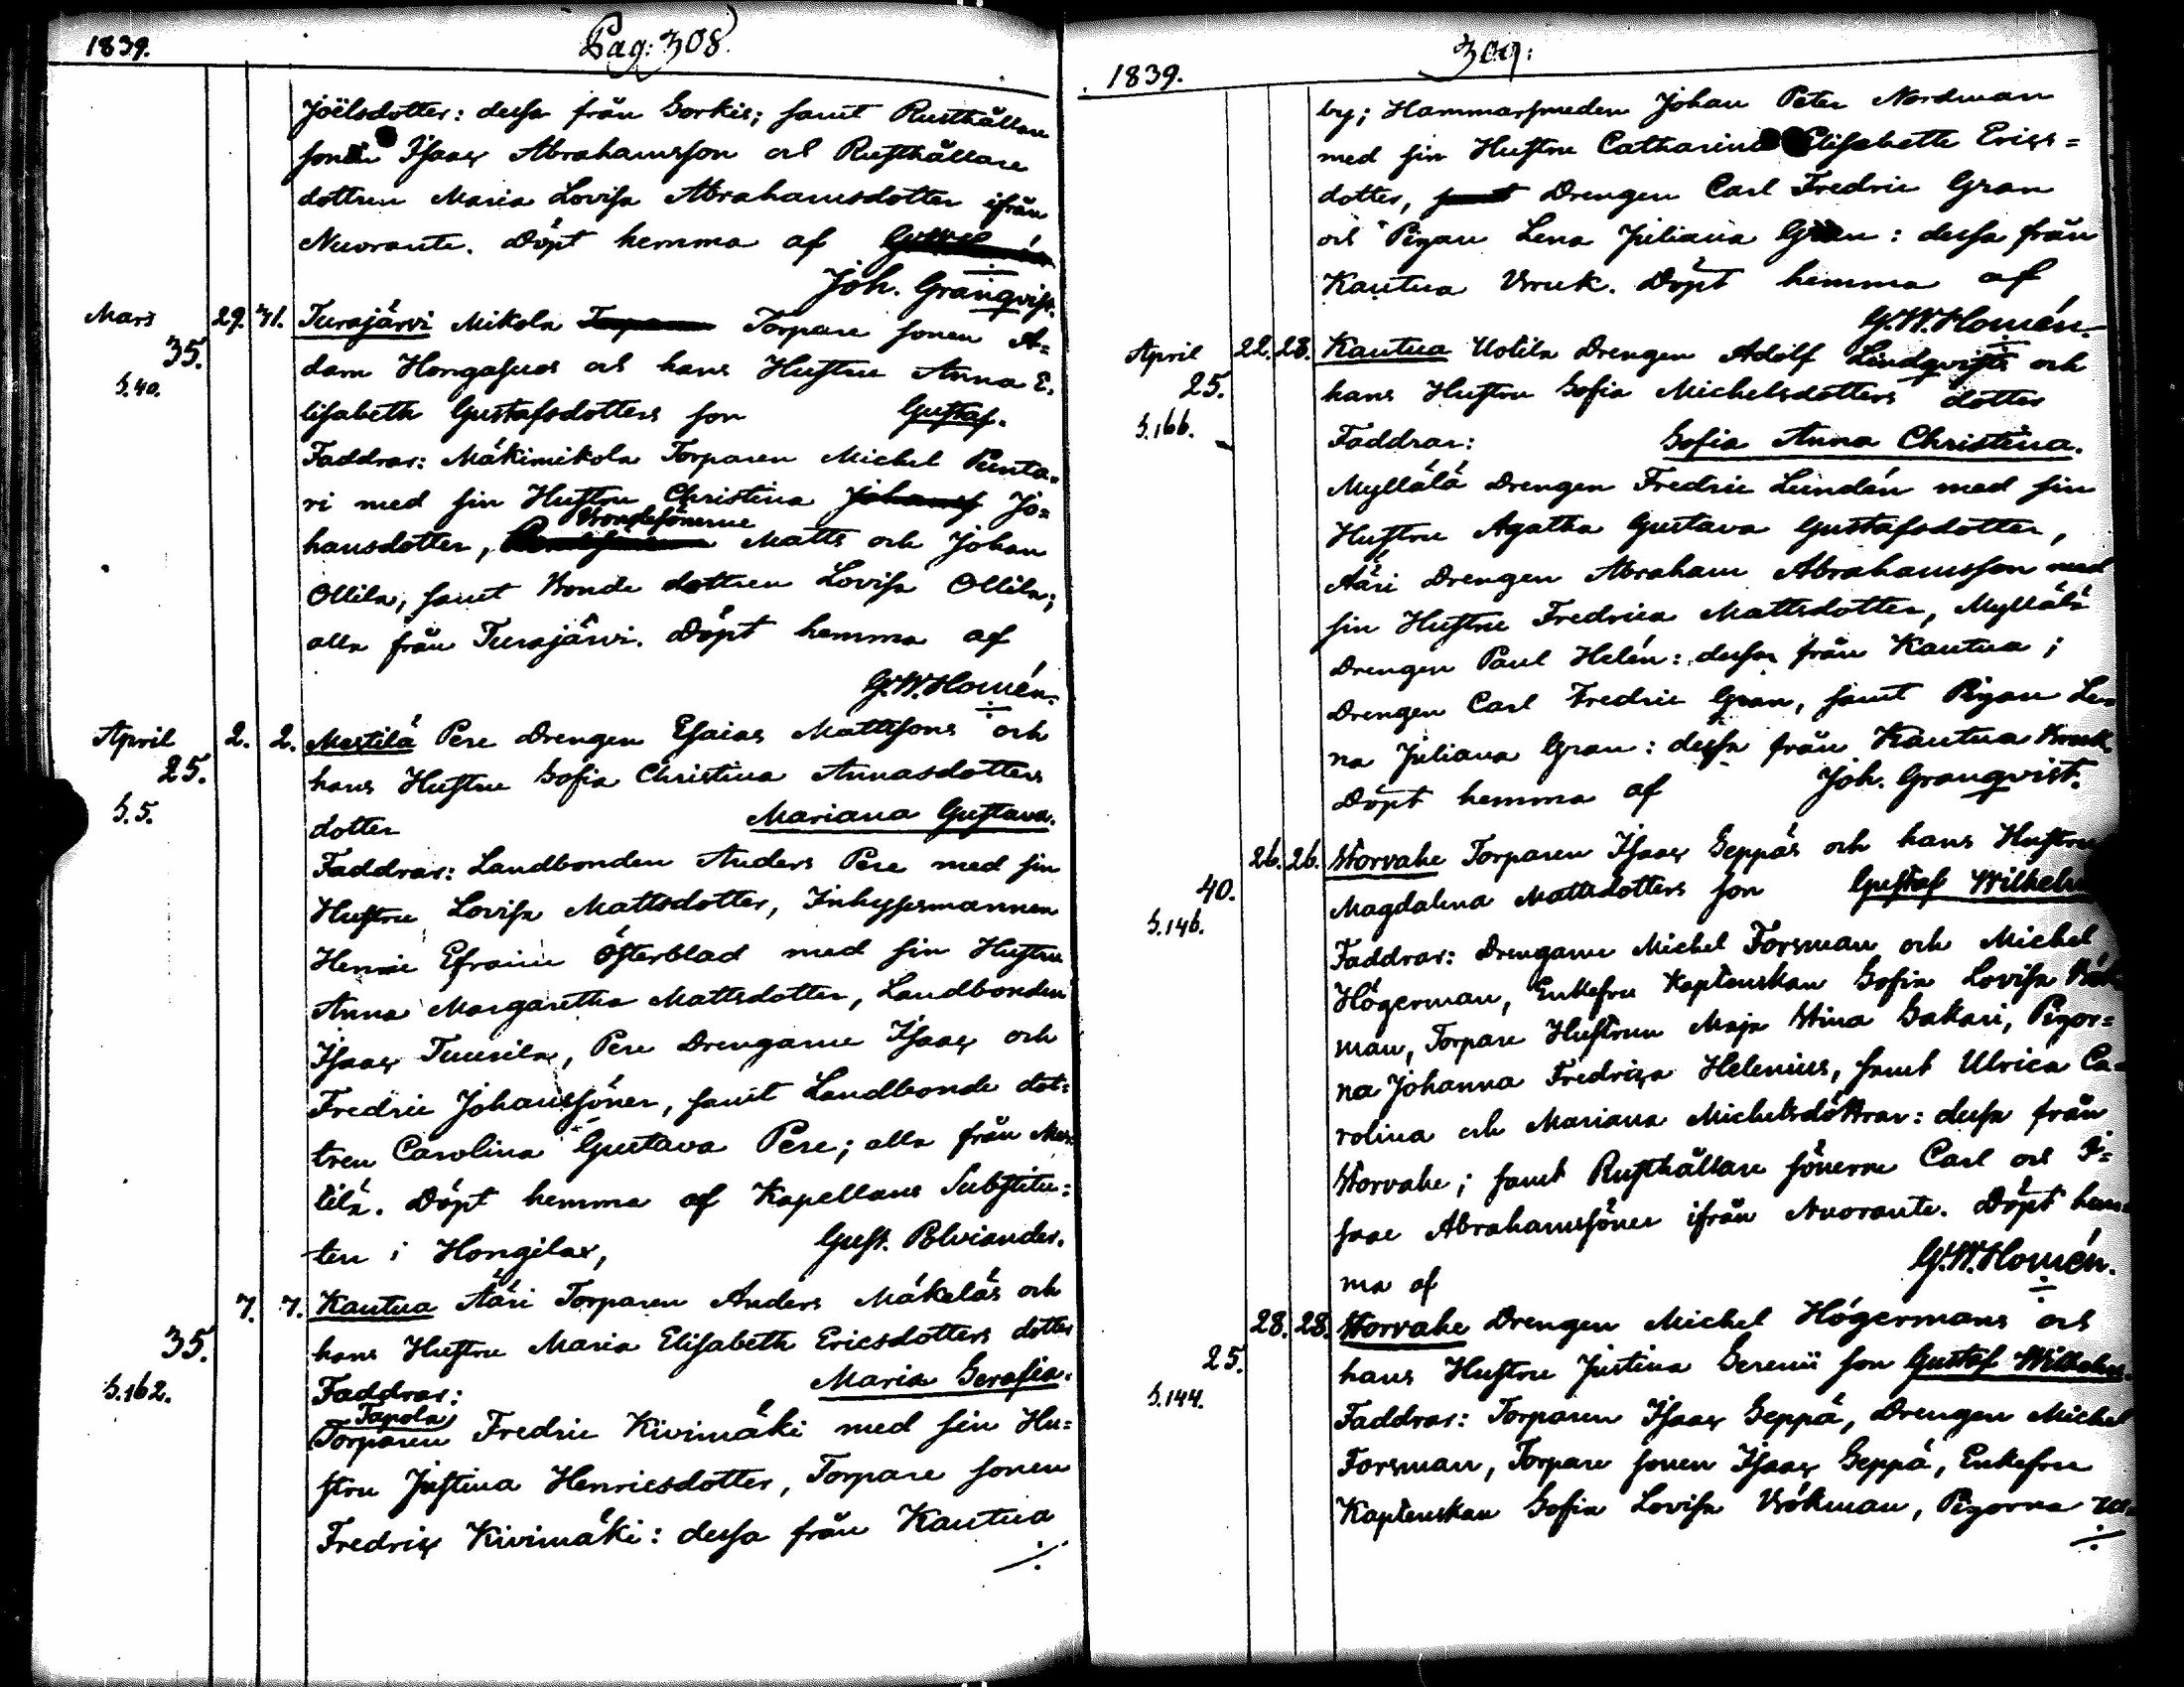 1839. Pag: 308.
Joëlsdotter: dessa från Sorkis; samt Rusthållare
sonen Isaac Abrahamsson och Rusthållare
dottren Maria Lovisa Abrahamsdotter ifrån
Nuoranta. Döpt hemma af
Joh. Granqvist.
Mars 29. 31. Turajärvi Mikola Torpare sonen A=
35. dam Hongasuos och hans Hustru Anna E=
S.40. lisabeth Gustafsdotters son Gustaf.
Faddrar: Mäkimikola Torparen Michel Punta=
ri med sin Hustru Christina Jo=
Bondesönerne
hansdotter, Matts och Johan
Ollila, samt Bonde dottren Lovisa Ollila;
alla från Turajärvi. Döpt hemma af
G.W. Homén.
April 2. 2. Mestilä Pere Drengen Esaias Mattssons och
25. hans Hustru Sofia Christina Annasdotters
S.5. dotter Mariana Gustava.
Faddrar: Landbonden Anders Pere med sin
Hustru Lovisa Mattsdotter, Inhysesmannen
Henric Efraim Österblad med sin Hustru
Anna Margaretha Mattsdotter, Landbonden
Isaac Tuurila, Pere Drengarne Isaac och
Fredric Johanssöner, samt Landbonde dot=
tren Carolina Gustava Pere; alla från Mes=
tilä. Döpt hemma af Kapellans Substitu=
ten i Hongilax, Gust. Polviander.
7. 7. Kautua Ääri Torparen Anders Mäkeläs och
35. hans Hustru Maria Elisabeth Ericsdotters dotter
S.162. Faddrar: Maria Serafia.
Tapola
Torparen Fredric Kivimäki med sin Hu=
stru Justina Henricsdotter, Torpare sonen
Fredric Kivimäki: dessa från Kautua
./.
1839. 309:
by; Hammarsmeden Johan Peter Nordman
med sin Hustru Catharina Elisabeth Erics=
dotter, samt Drengen Carl Fredric Gran
och Pigan Lena Juliana Gran: dessa från
Kautua Bruk. Döpt hemma af
G.W. Homén.
April 22. 28. Kautua Uotila Drengen Adolf Lindqvists och
25. hans Hustru Sofia Michelsdotters dotter
S.166. Faddrar: Sofia Anna Christina.
Myllälä Drengen Fredric Lundán med sin
Hustru Agatha Gustava Gustafsdotter,
Ääri Drengen Abraham Abrahamsson med
sin Hustru Fredrica Mattsdotter, Myllälä
Drengen Paul Helén: dessa från Kautua;
Drengen Carl Fredric Gran, samt Pigan Le=
na Juliana Gran: dessa från Kautua Bruk.
Döpt hemma af Joh. Granqvist.
26. 26. Worvahe Torparen Isaac Seppäs och hans Hustru
40. Magdalena Mattsdotters son Gustaf Wilhelm
S.146. Faddrar: Drengarne Michel Forsman och Michel
Högerman, Enkefru Kaptenskan Sofia Lovisa Bök=
man, Torpare Hustrun Maja Stina Sakari, Pigor=
na Johanna Fredrica Helenius, samt Ulrica Ca=
rolina och Mariana Michelsdöttrar: dessa från
Worvahe; samt Rusthållare sönerne Carl och I=
saac Abrahamssöner ifrån Nuoranta. Döpt hem=
ma af G.W. Homén.
28. 28. Worvahe Drengen Michel Högermans och
25. hans Hustru Justina Serenii son Gustaf Wilhelm.
S.144. Faddrar: Torparen Isaac Seppä, Drengen Michel
Forsman, Torpare sonen Isaac Seppä, Enkefru
Kaptenskan Sofia Lovisa Bökman, Pigorna Ul=
./.